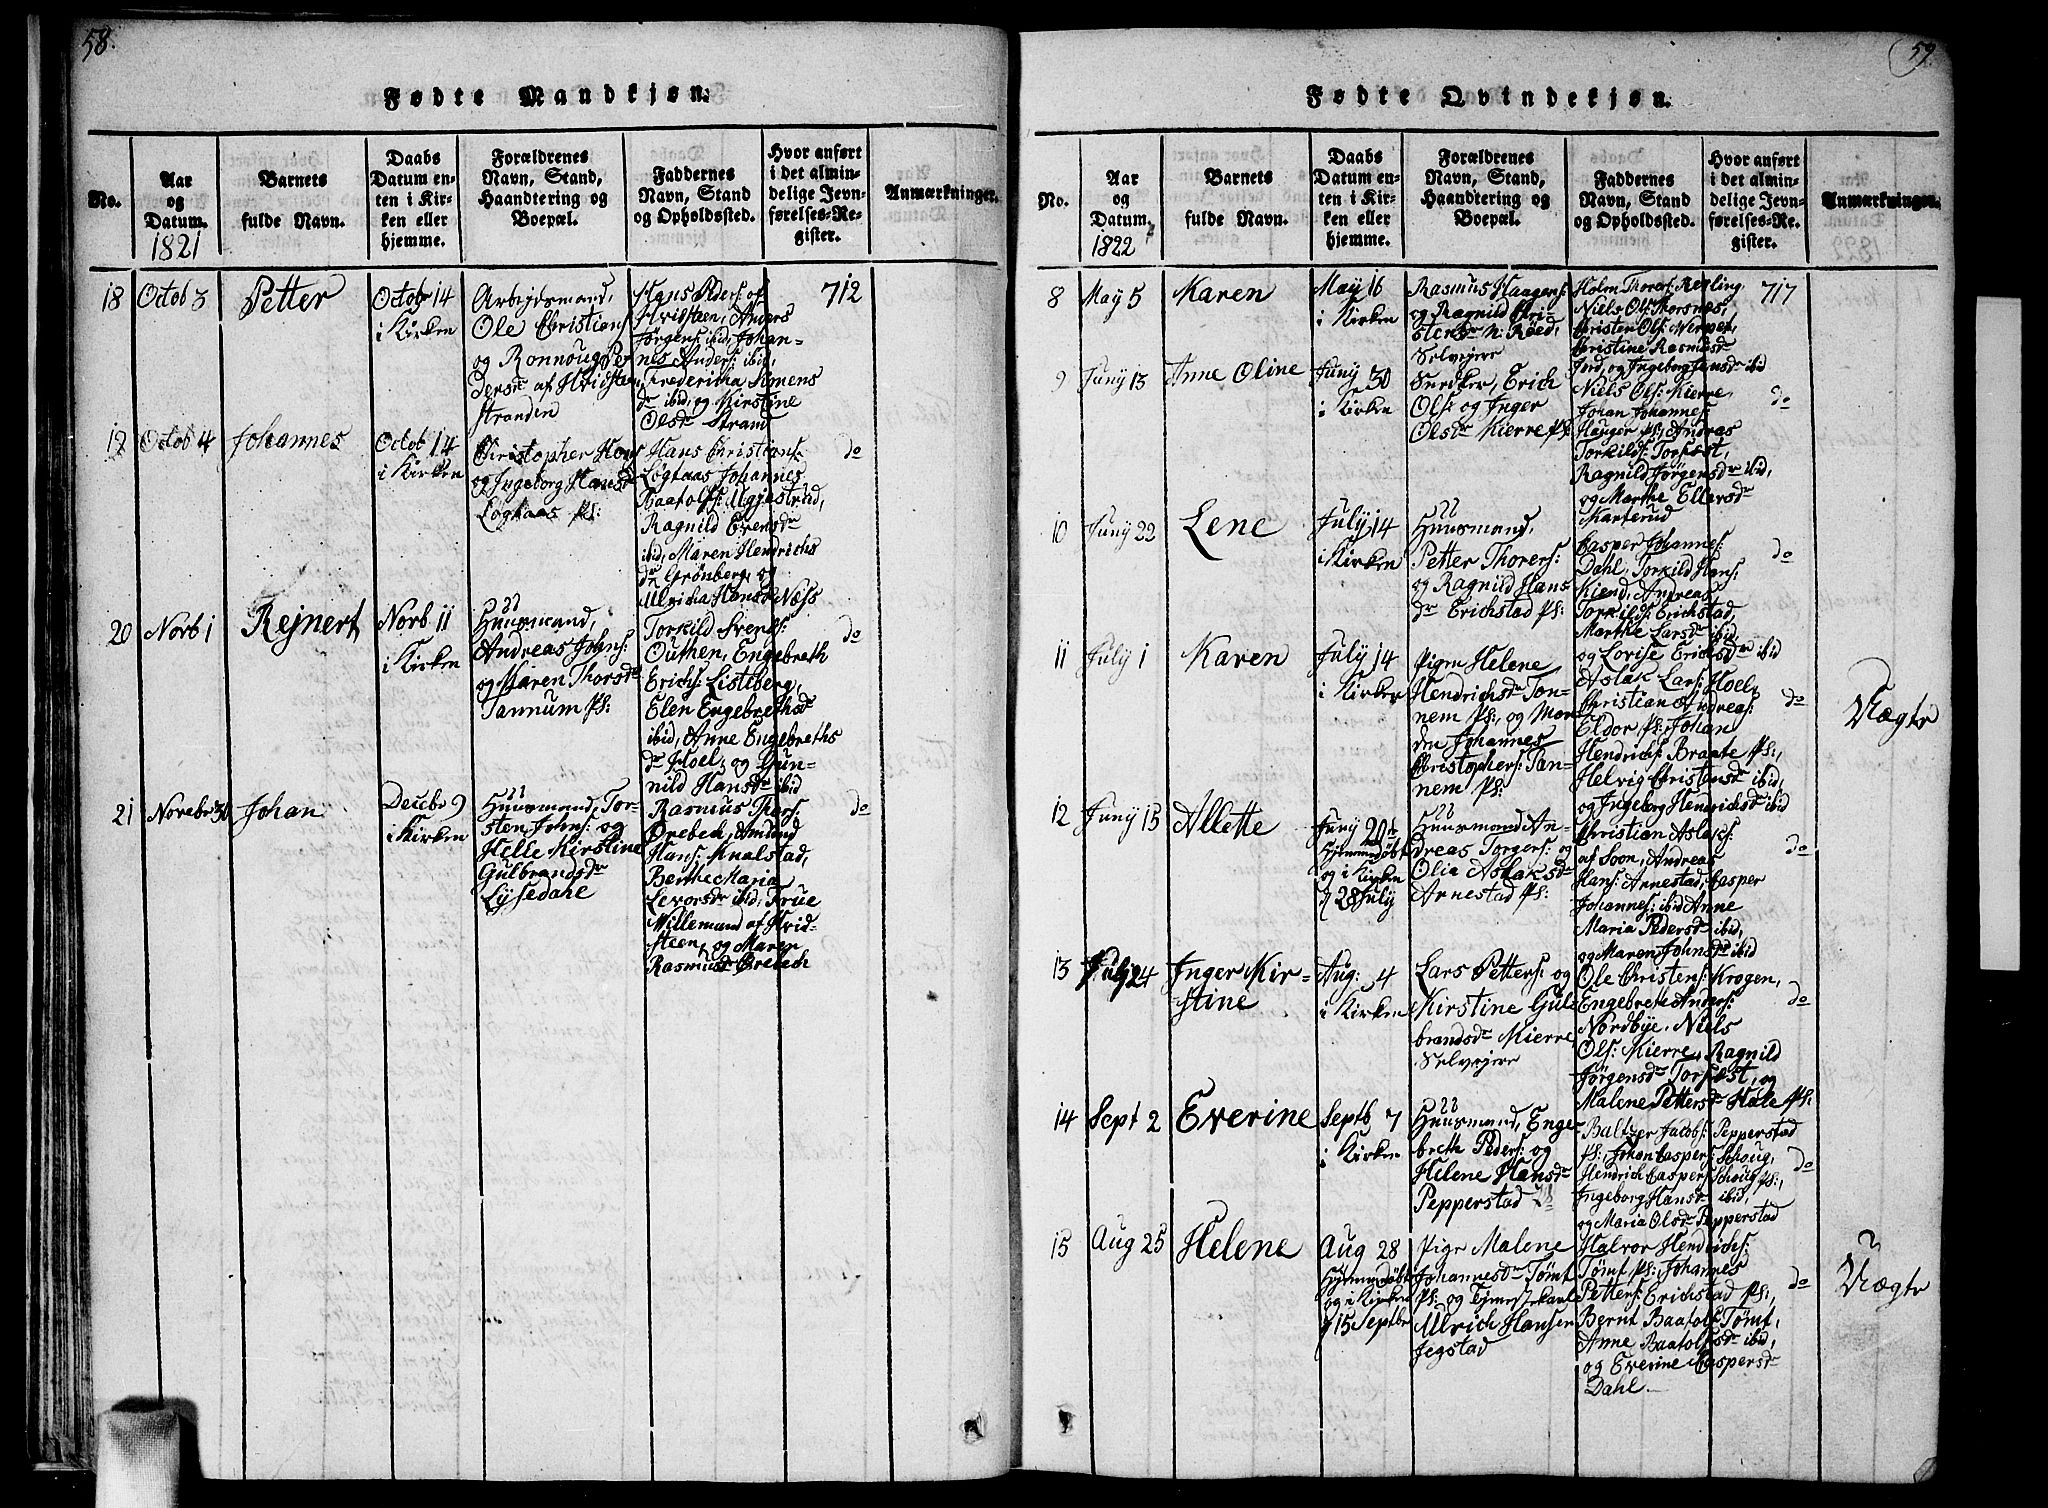 58.
Fødte Mandkjøn.
No.
Aar
og
Datum.
1821
Barnets
fulde Navn.
Daabs
Datum en-
ten i Kir-
ken eller
hjemme.
Forældrenes
Navn, Stand,
Haandtering og
Boepæl.
Faddernes
Navn, Stand
og Opholdssted.
Hvor anført
i det almin-
delige Jevn-
førelses-Re-
gister.
Anmærkninger.
18
Octob 3
Petter
Octob 14
i Kirken
Arbejdsmand,
Ole Christians
og Ronnoug Pe
dersdr af Hvidsteen
stranden
Hans Peders: af
Hvidsteen, Anders
Jörgens: ibid, Johan-
nes Anders: ibid,
Fredericha Simens
dr ibid, og Kirstine
Olsdr Strand
712
19
Octob 4
Johannes
Octob 14
i Kirken
Christopher Hans
og Ingeborg Hansdr
Løgtaas Ps:
Hans Christians:
Løgtaas, Johannes
Baatolfs: Ugjestrud,
Ragnild Evensdr
ibid, Maren Hendrichs
dr Grønberg, og
Ulricha Hansdr Næss
do
20
Novb 1
Rejnert
Novb 11
i Kirken
Huusmand,
Andreas Johns:
og Maren Thorsdr
Tannum Ps:
Torkild Svens:
Outhen, Engebreth
Erichs: Listeberg,
Elen Engebrethsdr
ibid, Anne Engebreths
dr Hoel, og Gun-
nild Hansdr ibid
do
21
Novebr 30
Johan
Decebr 9
i Kirken
Huusmand, Tor-
sten Johns: og
Helle Kirstine
Gulbrandsdr
Lysedahl
Rasmus Thors:
Orebech, Amund
Hans: Knalstad,
Berthe Maria
Levorsdr ibid, Frue
Willemand af Hvid-
steen, og Maren
Rasmusdr Orebech
do
59
Fødte Qvindekjøn.
No.
Aar
og
Datum.
1822
Barnets
fulde Navn.
Daabs
Datum en-
ten i Kir-
ken eller
hjemme.
Forældrenes
Navn, Stand,
Haandtering og
Boepæl.
Faddernes
Navn, Stand
og Opholdssted.
Hvor anført
i det almin-
delige Jevn-
førelses-Re-
gister.
Anmærkninger.
8
May 5
Karen
May 16
i Kirken
Rasmus Haagens:
og Ragnild Chri-
stensdr N: Røed,
Selvejere
Holm Thoras: Resling
Niels Ols: Thorsnes,
Christen Ols: Nerpen,
Christine Rasmusdr
Ind, og Ingeborg Jensdr ibid
717
9
Juny 13
Anne Oline
Juny 30
i Kirken
Snedker, Erich
Ols: og Inger
Olsdr Kierre Ps:
Niels Ols: Kierre,
Johan Johannes:
Haugør Ps:, Andras
Torkilds: Torfæst,
Ragnild Jörgensdr ibid,
og Marthe Ellersdr
Karterud
do
10
Juny 22
Lene
July 14
i Kirken
Huusmand,
Petter Thorers:
og Ragnild Hans
dr Erichstad Ps:
Casper Johannes:
Dahl, Torkild Hans:
Kiend, Andreas
Torkilds: Erichstad,
Marthe Larsdr ibid,
og Lovise Erichsdr ibid
do
11
July 1
Karen
July 14
i Kirken
Pigen Helene
Hendrichsdr Ton-
nem Ps:, og Mor-
den Johannes
Christophers: Tan-
nem Ps:
Aslak Lars: Hoel,
Christian Andreas:
Eldor Ps:, Johan
Hendrichs: Braate Ps:,
Helvig Christensdr ibid,
og Ingeborg Hendrichsdr ibid
do
Uægte
12
Juny 15
Allette
Juny 20de
hjemmedøbt
og i Kirken
d 28 July
Huusmand An-
dreas Torgers: og
Olia Aslaksdr
Arnestad Ps:
Christian Aslaks:
af Soon, Andreas
Hans: Arnestad, Casper
Johannes: ibid, Anne
Maria Pedersdr ibid,
og Maren Johnsdr ibid
do
13
July 24
Inger Kir-
stine
Aug: 4
i Kirken
Lars Petters: og
Kirstine Gul-
brandsdr Kierre,
Selvejere
Ole Christens: Krogen,
Engebreth Anders:
Nordbye, Niels
Ols: Kierre, Ragnild
Jörgensdr Torfæst, og
Malene Pettersdr Hale Ps:
do
14
Sept 2
Everine
Septb 7
i Kirken
Huusmand, Enge-
breth Peders: og
Helene Hansdr
Pepperstad Ps
Baltzer Jacobs: Pepperstad
Ps:, Johan Caspers: Schoug,
Hendrich Caspers: Schoug Ps:,
Ingeborg Hansdr ibid,
og Maria Olsdr Pepperstad
do
15
Aug 25
Helene
Aug 28
Hjemmedøbt
og i Kirken
d 15 Septbr
Pige Malene
Johannesdr Tømt
Ps: og Tjenestekarl
Ulrich Hansen
Jegstad
Halvor Hendrichs:
Tømt Ps:, Johannes
Petters: Erichstad Ps:,
Bernt Baatolfs: Tømt,
Anne Baatolfsdr ibid,
og Everine Caspersdr
Dahl.
do
Uægte